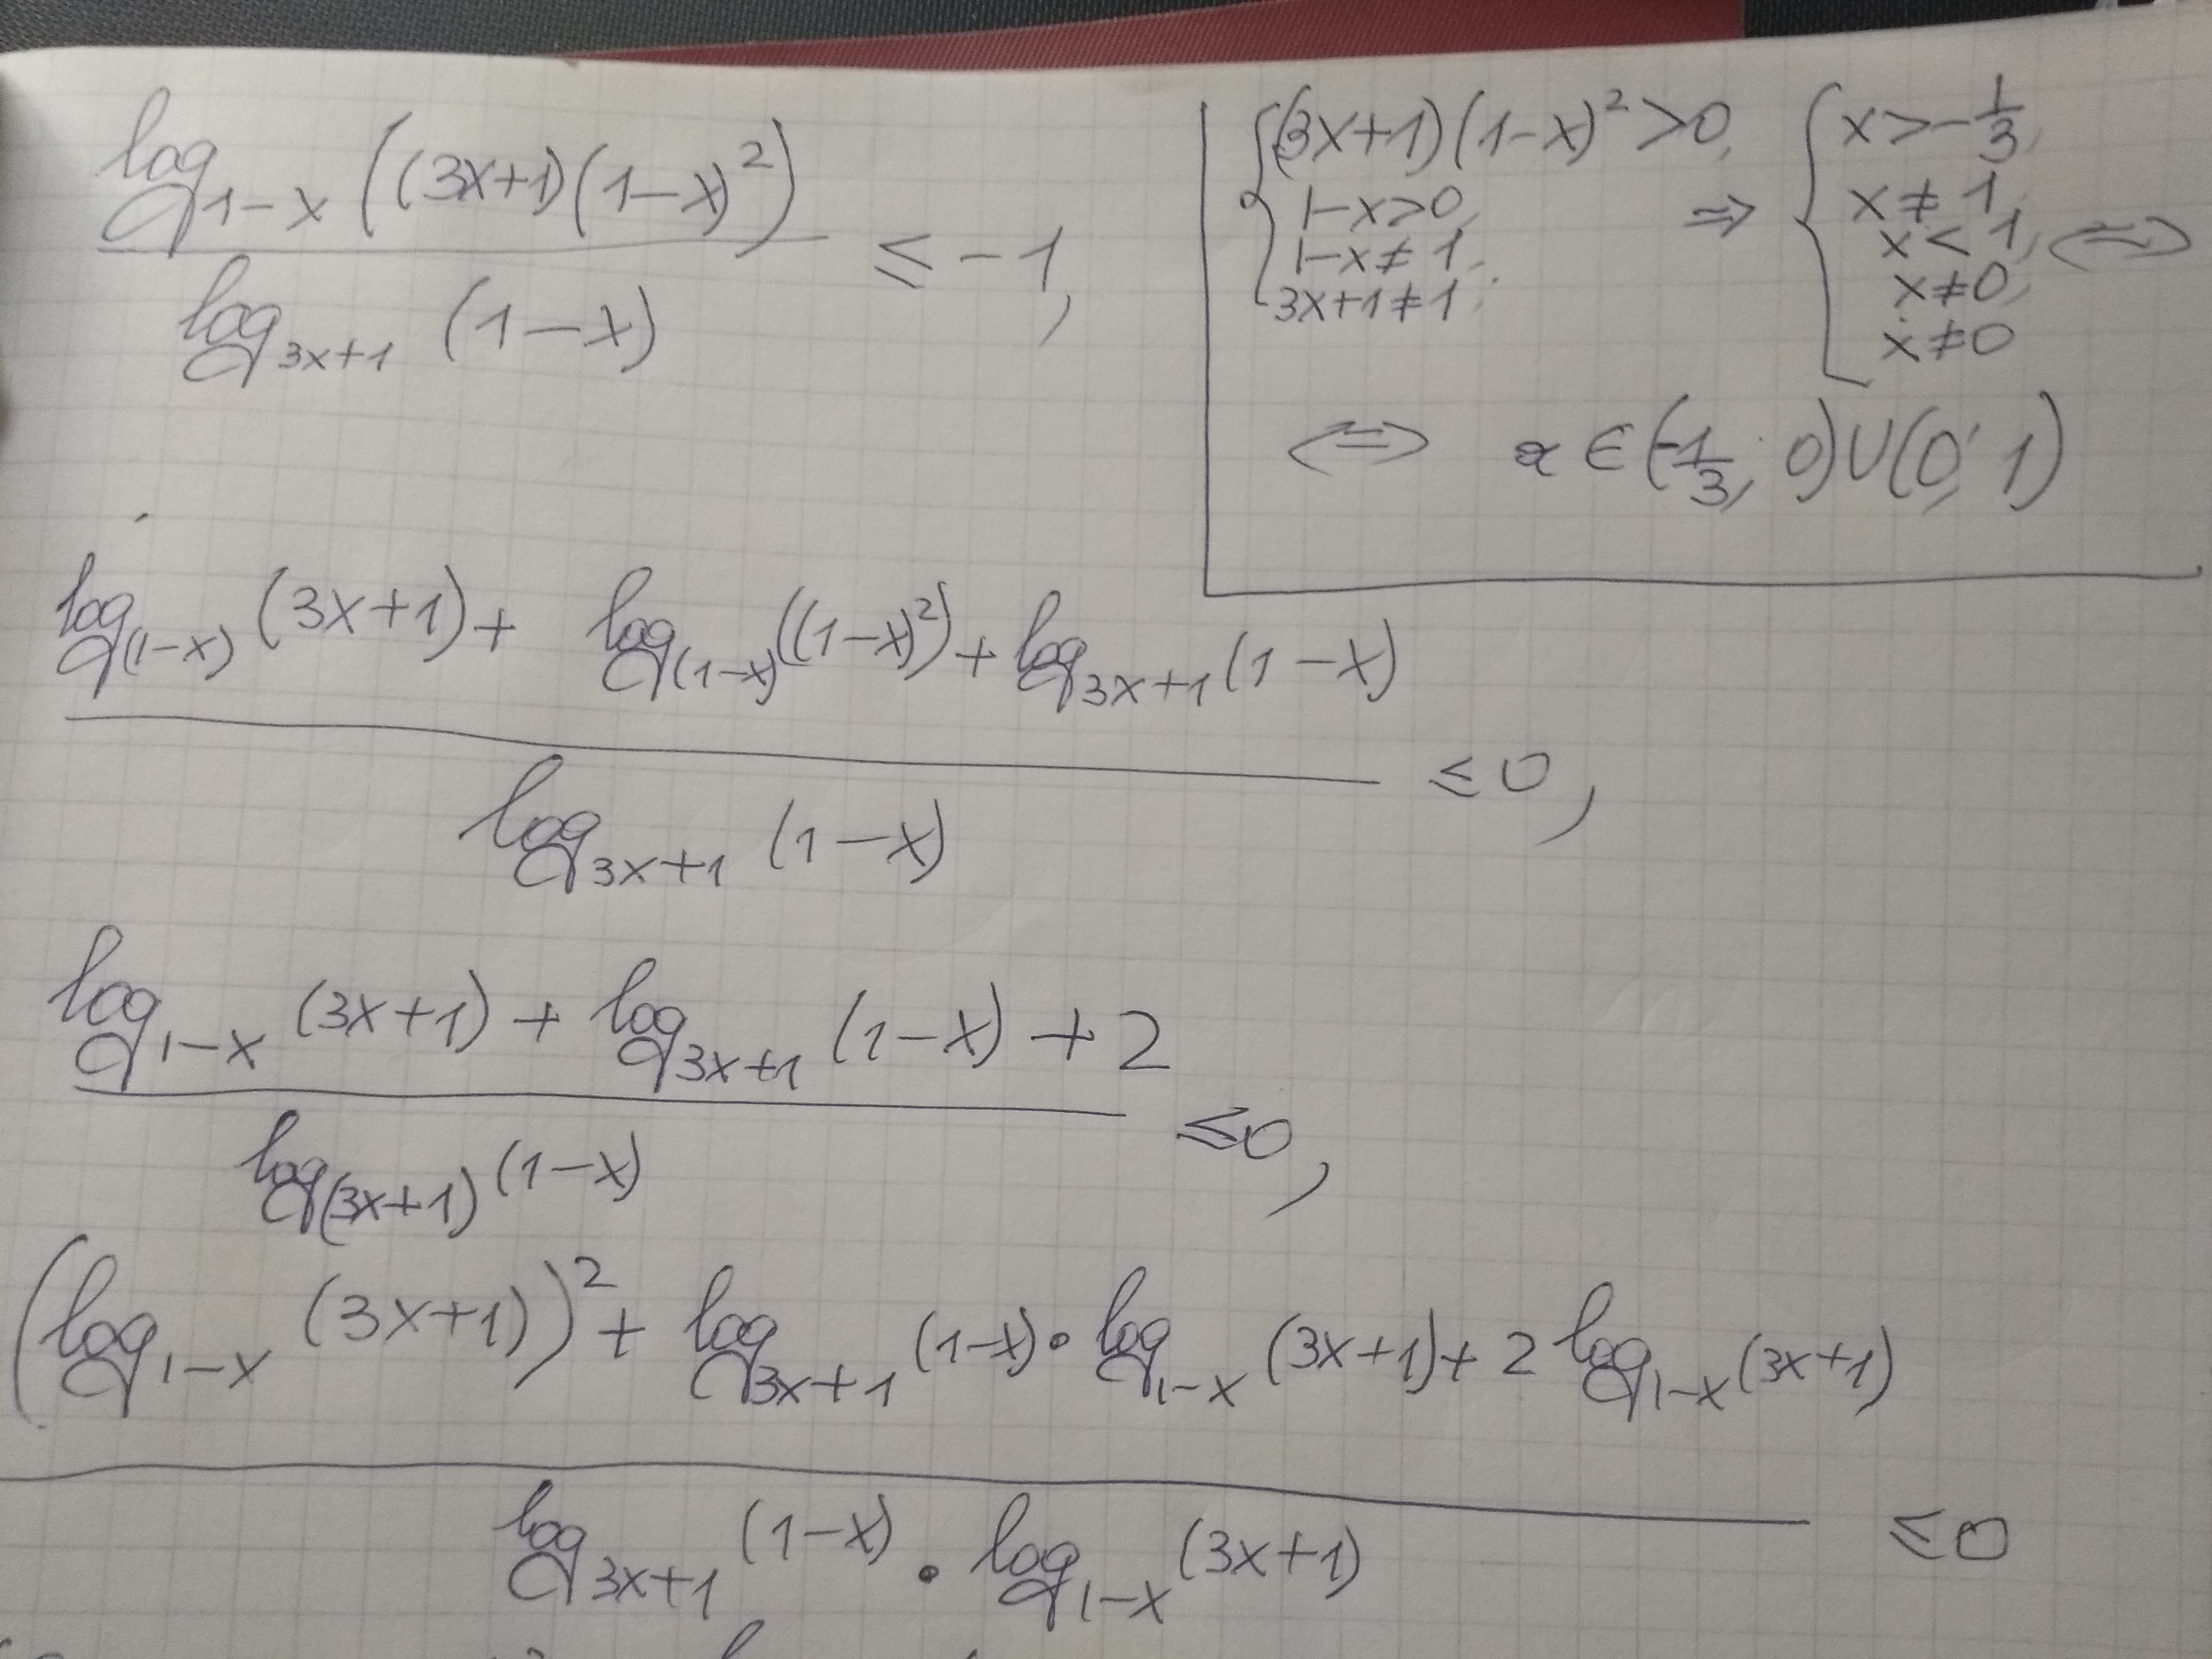 log_{1-x} ((3x+1)(1-x)^2)
/ log_{3x+1} (1-x) ≤ -1,
{ (3x+1)(1-x)^2 > 0,
1-x > 0,
1-x ≠ 1,
3x+1 ≠ 1;
⇒ { x > -1/3,
x ≠ 1,
x < 1,
x ≠ 0,
x ≠ 0
⇔
⇔ x ∈ (-1/3; 0) ∪ (0; 1)
log_{(1-x)} (3x+1) + log_{(1-x)} ((1-x)^2) + log_{3x+1} (1-x)
/ log_{3x+1} (1-x) ≤ 0,
log_{1-x} (3x+1) + log_{3x+1} (1-x) + 2
/ log_{(3x+1)} (1-x) ≤ 0,
(log_{1-x} (3x+1))^2 + log_{3x+1} (1-x) · log_{1-x} (3x+1) + 2 log_{1-x} (3x+1)
/ log_{3x+1} (1-x) · log_{1-x} (3x+1) ≤ 0